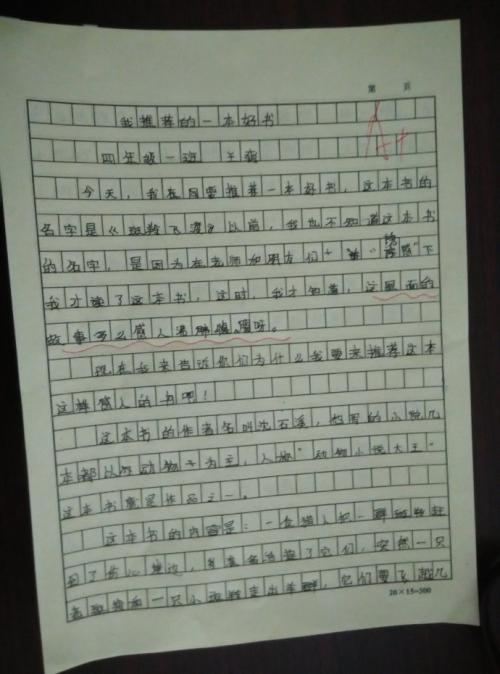 第 页
我推荐的一本好书
A+
四年级一班 王
今天，我在这里要推荐一本好书，这本书的
名字是《斑羚飞渡》以前，我也不知道这本书
的名字，是因为在老师和朋友们 “ ”下
我才读了这本书，这时，我才知道，这里面的
故事多么感人 呀。
现在我来告诉你们为什么我要来推荐这本
这样感人的书吧！
这本书的作者名叫沈石溪，他写的小说几
本都以 动物 为主，人称“动物小说大王”
这本书就是作品之一。
这本书的内容是：一 猎人把一群斑羚赶
到了伤心崖边， 了它们，突然一只
老斑羚和一只小斑羚走出羊群，它们要飞越几
20×15=300